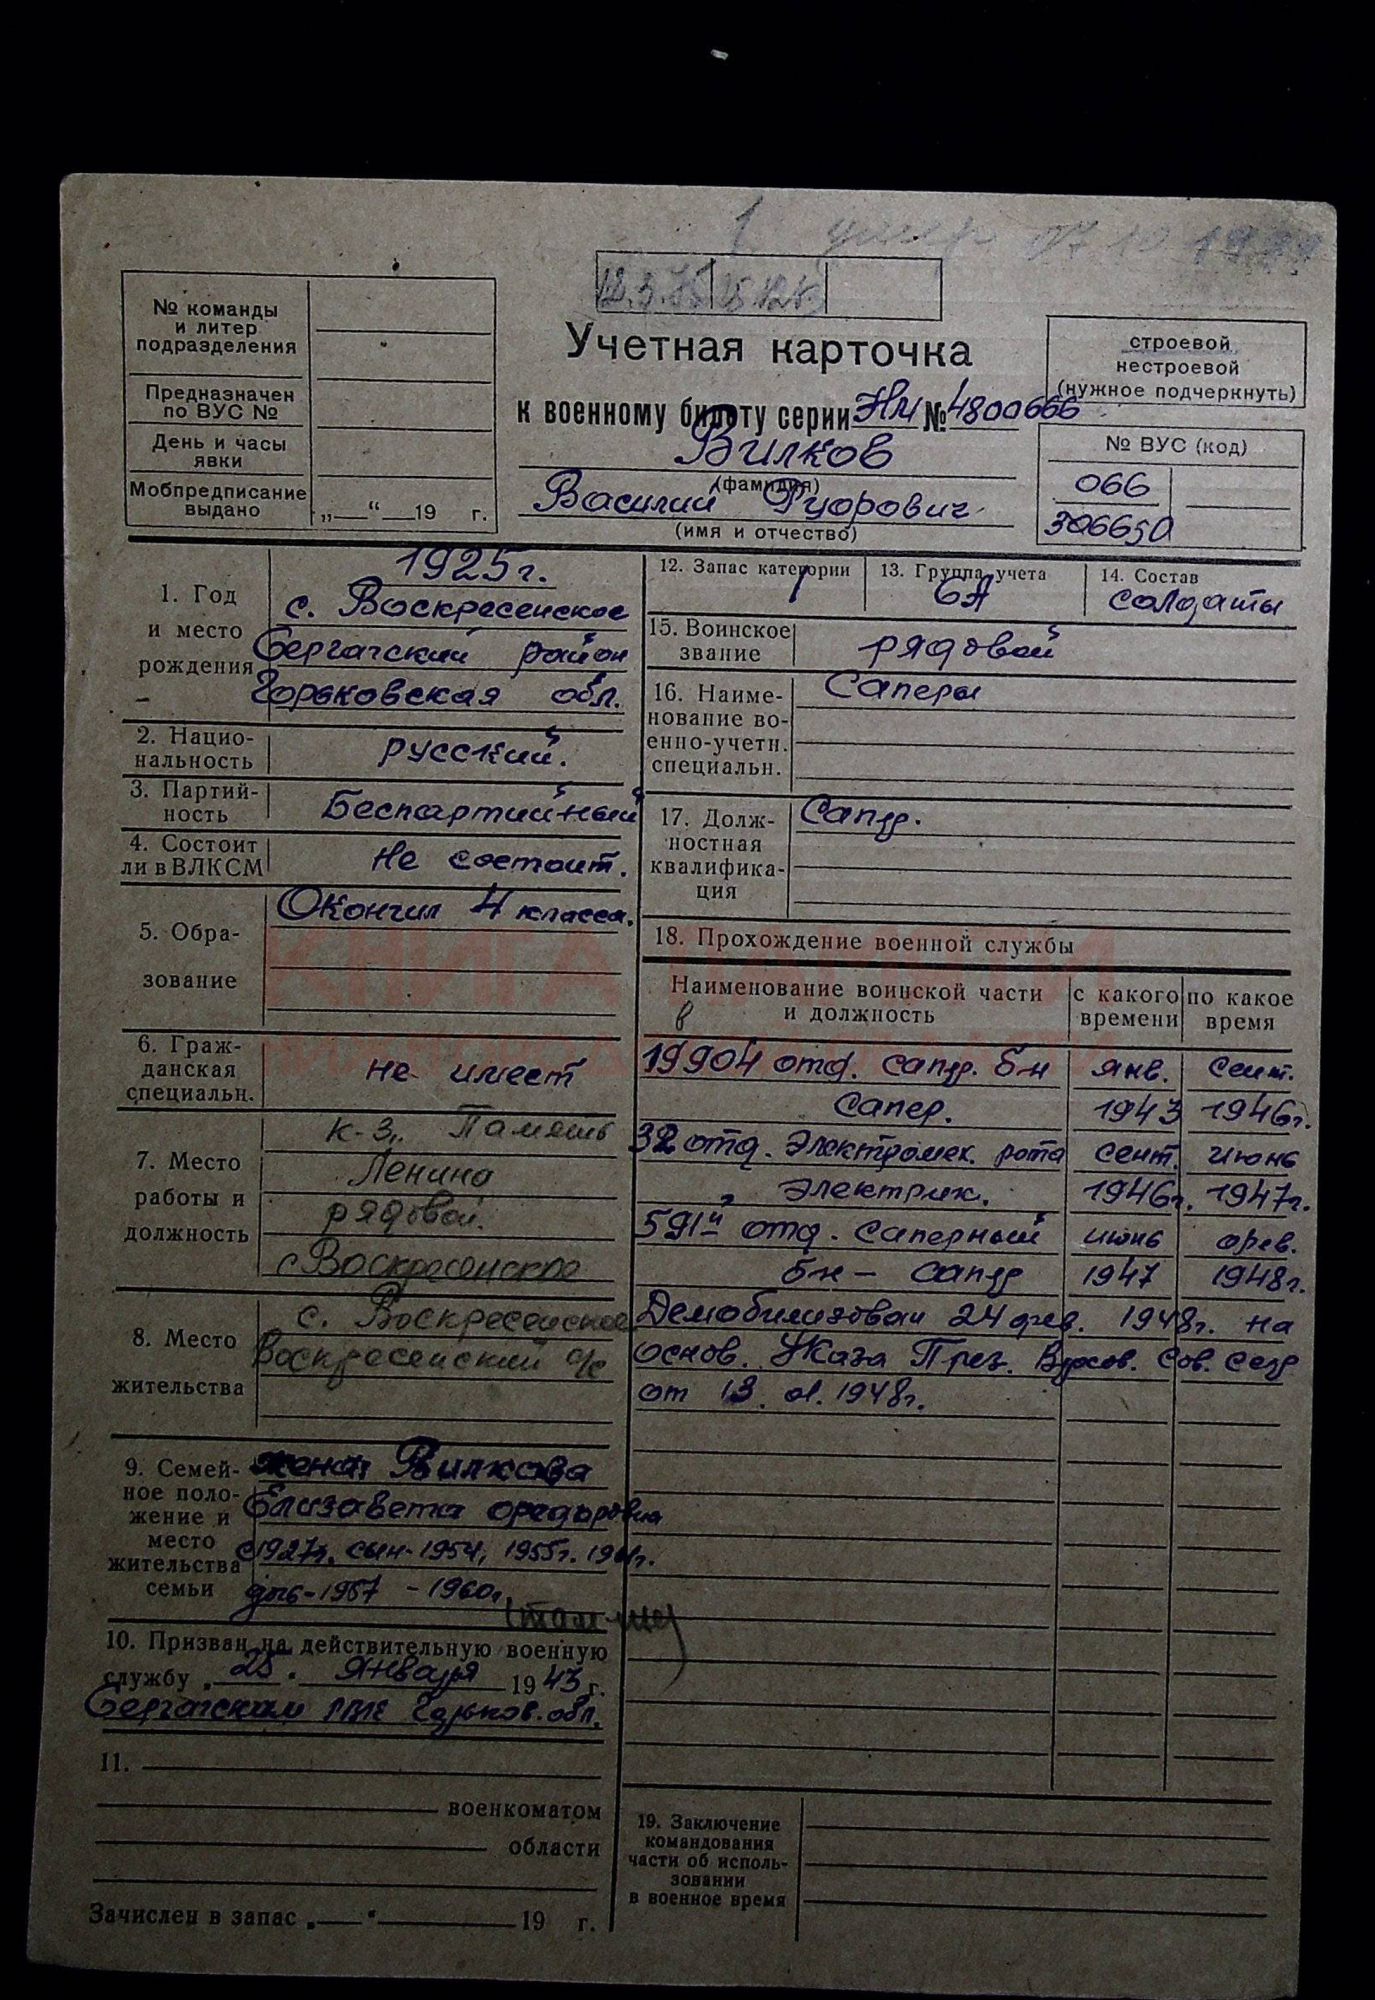 1 умер 07 10
12.3.75 15.12.
№ команды
и литер
подразделения
Предназначен
по ВУС №
День и часы
явки
Мобпредписание
выдано
„ “ 19 г.
Учетная карточка
к военному билету серии НМ № 4800666
Вилков
(фамилия)
Василий
(имя и отчество)
строевой
нестроевой
(нужное подчеркнуть)
№ ВУС (код)
066
306650
1. Год
и место
рождения
1925г.
с. Воскресенское
Сергачский район
Горьковская обл.
2. Нацио-
нальность
русский.
3. Партий-
ность
Беспартийный
4. Состоит
ли в ВЛКСМ
Не состоит.
5. Обра-
зование
Окончил 4 класса.
6. Граж-
данская
специальн.
не имеет
7. Место
работы и
должность
к-з „Память
Ленина
рядовой.
с Воскресенское
8. Место
жительства
с. Воскресенское
Воскресенский с/с
9. Семей-
ное поло-
жение и
место
жительства
семьи
жена Вилкова
Елизавета Федоровна
1927г. сын-1954, 1955г. 1961г.
дочь-1957 - 1960г.
(там-же)
10. Призван на действительную военную
службу „25“ января 1943 г.
Сергачским РВК Горьков. обл.
11.
военкоматом
области
Зачислен в запас „ “ 19 г.
12. Запас категории
1
13. Группа учета
СА
14. Состав
солдаты
15. Воинское
звание
рядовой
16. Наиме-
нование во-
енно-учетн.
специальн.
Саперы
17. Долж-
ностная
квалифика-
ция
Сапер.
18. Прохождение военной службы
Наименование воинской части
и должность
с какого
времени
по какое
время
в
19904 отд. сапер. б-н янв. сент.
Сапер. 1943 1946г.
32 отд. электромех. рота сент. июнь
Электрик. 1946г. 1947г.
591й отд. саперный июнь фев.
б-н - сапер 1947 1948г.
Демобилизован 24 фев. 1948г. на
основ. Указа През. Верхов. Сов. СССР
от 13. 1948г.
19. Заключение
командования
части об исполь-
зовании
в военное время
КНИГА ПАМЯТИ
НИЖЕГОРОДСКОЙ ОБЛАСТИ